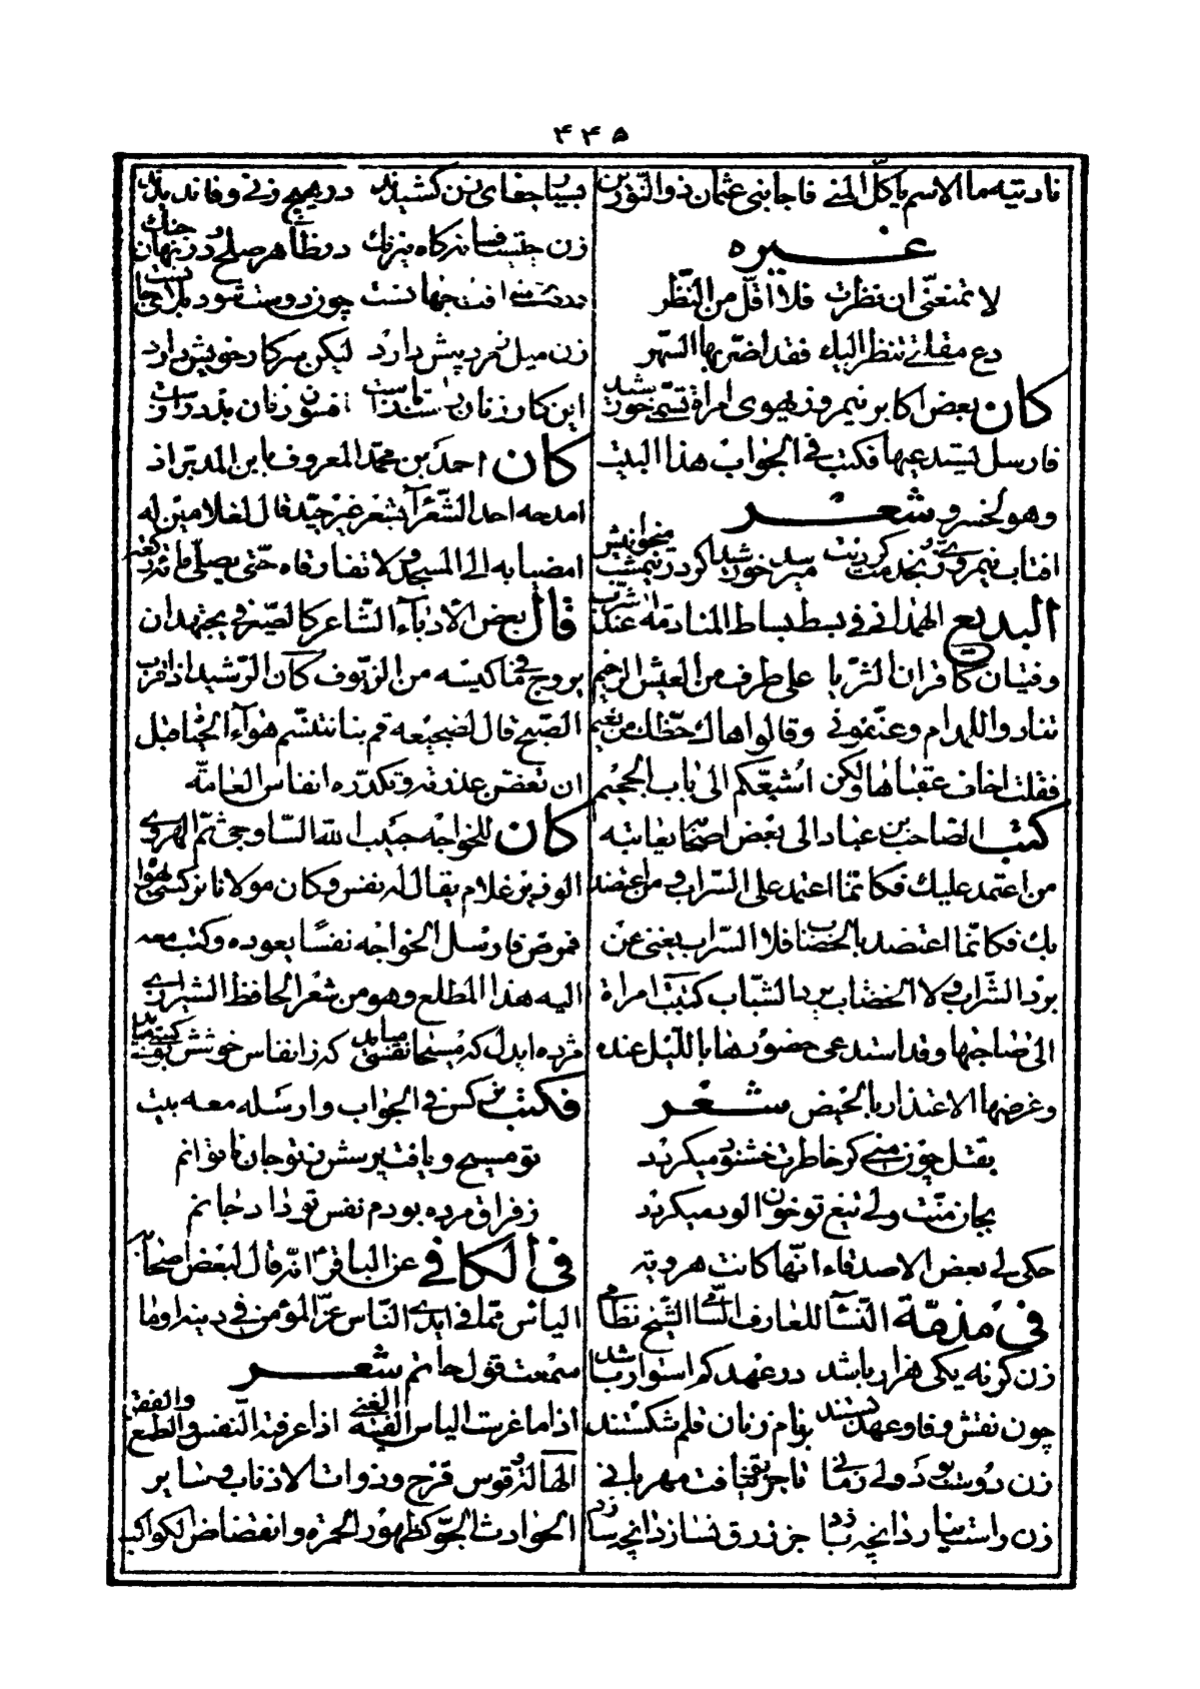 ۴۴۵
نادیته ما الاسم یا کل المنی فاجابنی عثمان ذو النورین
غیره
لا تمنعنی ان نظرت فلا اقل من النظر
دع مقلتی تنظر الیك فقد اضر بها السهر
کان بعض اکابر نیمروز یهوی امراة تسمی خورشید
فارسل یستدعیها فکتبت فی الجواب هذا البیت
وهو لخسرو شعر
افتاب نیمروزی
البدیع الهمدانی فی بسط بساط المنادمة عنك
وفتیان کاقران الثریا علی طرف من العیش الرخیم
تنادوا للمدام وعنفونی وقالوا هاك حظك من نعیم
فقلت اخاف عقباها ولکن اشیعکم الی باب الجحیم
کتب الصاحب بن عباد الی بعض اصحابه یعاتبه
من اعتمد علیك فکانما اعتمد علی السراب و من اعتضد
بك فکانما اعتضد بالخضاب فلا السراب یغنی عن
برد الشراب و لا الخضاب برد الشباب کتبت امراة
الی صاحبها وقد استدعی حضورها باللیل عنده
وغرضها الاعتذار بالحیض شعر
بقتل چون منی کر خاطرت خشنود میکردد
بجان منت ولی تیغ تو خون الود میکردد
حکی لی بعض الاصدقاء انها کانت هرویة
فی مذمة النسا للعارف السامی الشیخ نظامی
زن کر نه یکی هزار باشد در عهد کم استوار باشد
چون نقش وفا و عهد بستند بر نام زنان قلم شکستند
زن دوست بود ولی زمانی تا جز تو نیافت مهربانی
زن راست نبازد انچه بازد جز زرق نسازد انچه سازد
بسیار جفای زن کشیدند در هیچ زنی وفا ندیدند
زن چیست فسانه کاه نیرنك در ظاهر صلح و در نهان جنك
در دشمنی افت جهانست چون دوست شود بلای جانست
زن میل ز مرد بیش دارد لیکن سر کار خویش دارد
این کار زنان راست باز است افسون زنان بد دراز است
کان احمد بن محمد المعروف بابن المدبر اذ
امدحه احد الشعرآ بشعر غیر جید قال لغلامین له
امضیا به الی المسجد ولا تفارقاه حتی یصلی مائة رکعة
قال بعض الادباء الشاعر کالصیرفی یجتهد ان
یروج فی ما کیسه من الزیوف کان الرشید اذا قرب
الصبح قال لضجیعه قم بنا نتنسم هوآء الحیا قبل
ان تکدره انفاس العامة
کان للخواجه حبیب الله الساوجی ثم الهروی
الوزیر غلام یقال له نفس وکان مولانا نرکسی یهواه
فمرض فارسل الخواجه نفسا یعوده وکتب معه
الیه هذا المطلع وهو من شعر الحافظ الشیرازی
مژده ایدل که مسیحا نفسی میاید که ز انفاس خوشش بوی کسی میاید
فکتب نرکسی فی الجواب وارسله معه بیت
تو مسیحی و یافت پرسش تو جان ناتوانم
ز فراق مرده بودم نفس تو داد جانم
فی الکافی عن الباقر انه قال لبعض اصحابه
الیاس مما فی ایدی الناس عز المؤمن فی دینه اوما
سمعت قول حاتم شعر
اذا ما عزمت الیاس الفیته الغنی اذا عرفته النفس والطمع والفقر
الهالة وقوس قزح وذوات الاذناب وسایر
الحوادث الجو کظهور الحمرة وانقضاض الکواکب